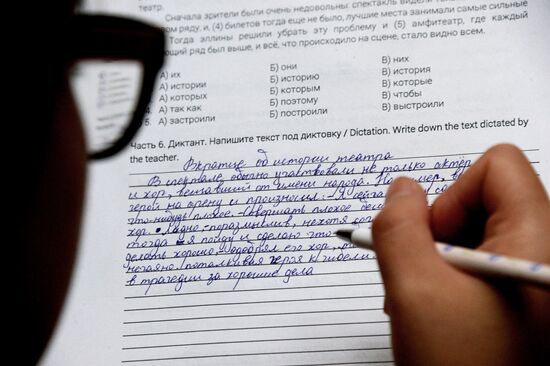 театр.
Сначала зрители были очень недовольны: спектакль видели
ряду, и, (4) билетов тогда еще не было, лучшие места занимали самые сильные
Тогда эллины решили убрать эту проблему и (5) амфитеатр, где каждый
ряд был выше, и всё, что происходило на сцене, стало видно всем.
А) их Б) они В) них
А) истории Б) историю В) история
А) которых Б) которым В) которые
А) так как Б) поэтому В) чтобы
5. А) застроили Б) построили В) выстроили
Часть 6. Диктант. Напишите текст под диктовку / Dictation. Write down the text dictated by
the teacher.
Вкратце об истории театра
В спектакле обычно участвовали не только актёр
и хор, вещавший от имени народа. 
герой на арену и произносил: -Я
что-нибудь плохое. -Совершать плохое
хор. -Ладно, -поразмыслив, нехотя
тогда я пойду и сделаю что-
делать хорошо, -одобрял его хор,
нечаянно подталкивая героя к гибели
в трагедии за хорошие дела